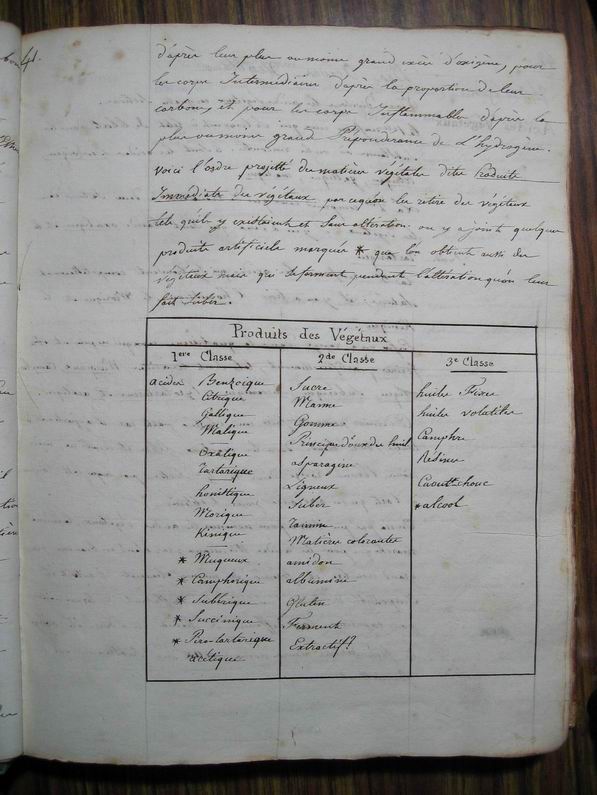 41.
d'après leur plus ou moins grand excès d'oxigène, pour
les corps Intermédiaires d'après la proportion de leur
carbone, et pour les corps Inflammables d'après la
plus ou moins grand Prépondérance de L'hydrogène.
Voici l'ordre projetté des matières végétales dites Produits
Immédiats des végétaux parcequon les retire des végétaux
tels quils y existaient et sans altération. on y a joint quelques
produits artificiels marqués * que l'on obtient aussi des
végétaux mais qui se forment pendant l'altération qu'on leur
fait subir.
Produits des Végétaux
1ere Classe
acides Benzoique
Citrique
Gallique
Malique
Oxalique
Tartarique
honistique
Morique
Kinique
* Muqueux
* Camphorique
* Subérique
* Succinique
* Piro-tartarique
acétique
2de Classe
Sucre
Manne
Gomme
Principe doux des huil
asparagine
Ligneux
Suber
Tannin
Matières colorantes
amidon
albumine
Gluten
Ferment
Extractif?
3e Classe
huiles Fixes
huiles volatiles
Camphre
Résines
Caouttchouc
* alcool